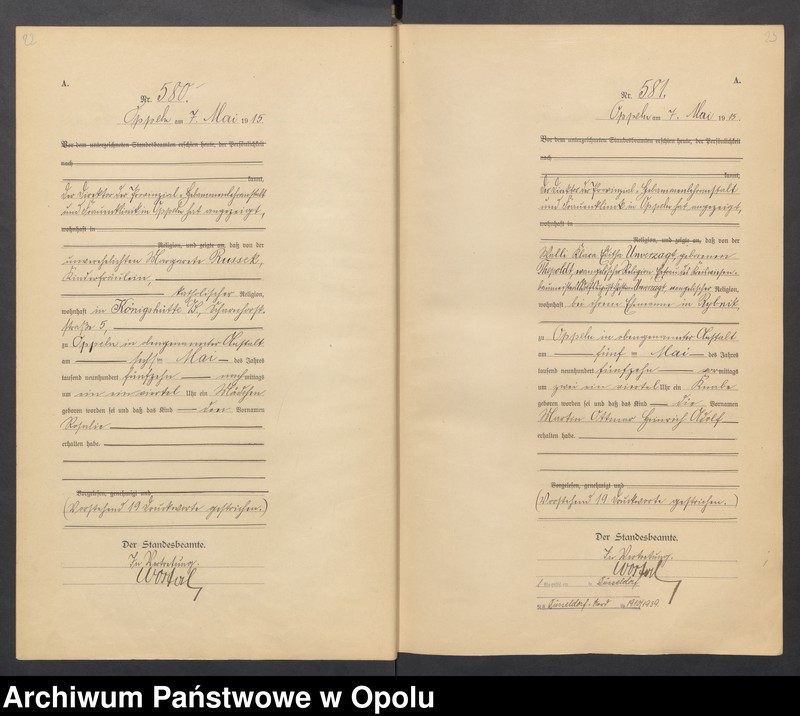 22
A.
Nr. 580.
Oppeln am 7. Mai 1915.
Vor dem unterzeichneten Standesbeamten erschien heute, der Persönlichkeit
nach
kannt,
Der Direktor der Provinzial-Hebammenlehranstalt
und Frauenklinik in Oppeln hat angezeigt,
wohnhaft in
Religion, und zeigte an, daß von der
unverehelichten Margarete Russek,
Kinderfräulein,
katholischer Religion,
wohnhaft in Königshütte O/S, Scharnhorst-
straße 5,
zu Oppeln in obengenannter Anstalt
am sechs Mai des Jahres
tausend neunhundert fünfzehn nachmittags
um ein ein viertel Uhr ein Mädchen
geboren worden sei und daß das Kind den Vornamen
Rosalie
erhalten habe.
Vorgelesen, genehmigt und
(Vorstehend 19 Druckworte gestrichen.)
Der Standesbeamte.
In Vertretung.
Wostal
23
A.
Nr. 581.
Oppeln am 7. Mai 1915.
Vor dem unterzeichneten Standesbeamten erschien heute, der Persönlichkeit
nach
kannt,
Der Direktor der Provinzial-Hebammenlehranstalt
und Frauenklinik in Oppeln hat angezeigt,
wohnhaft in
Religion, und zeigte an, daß von der
Walli Klara Unverzagt, geborenen
evangelischer Religion, Ehefrau des
Unverzagt, evangelischer Religion,
wohnhaft bei ihrem Ehemanne in Rybnik,
zu Oppeln in obengenannter Anstalt
am fünf Mai des Jahres
tausend neunhundert fünfzehn vormittags
um zwei ein viertel Uhr ein Knabe
geboren worden sei und daß das Kind die Vornamen
Martin Ottmar Heinrich Adolf
erhalten habe.
Vorgelesen, genehmigt und
(Vorstehend 19 Druckworte gestrichen.)
Der Standesbeamte.
In Vertretung.
Wostal
Düsseldorf
Düsseldorf-Nord
Archiwum Państwowe w Opolu